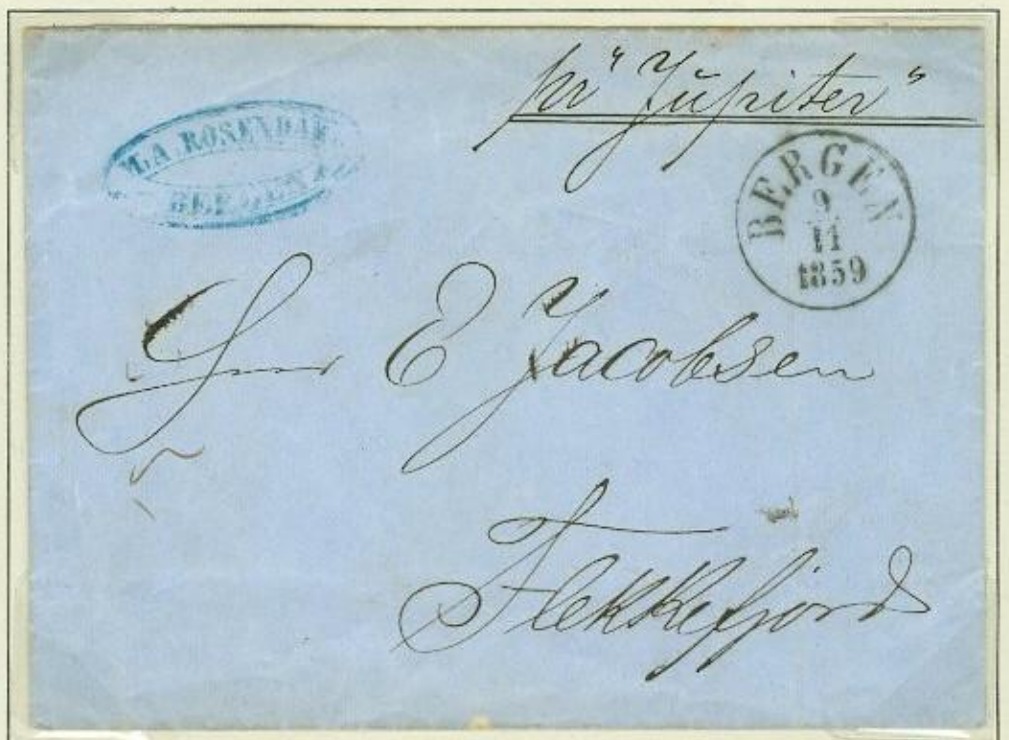 pr "Jupiter"
ROSENDAHL
BERGEN
BERGEN
9
11
1859
Herr E Jacobsen
Flekkefjord